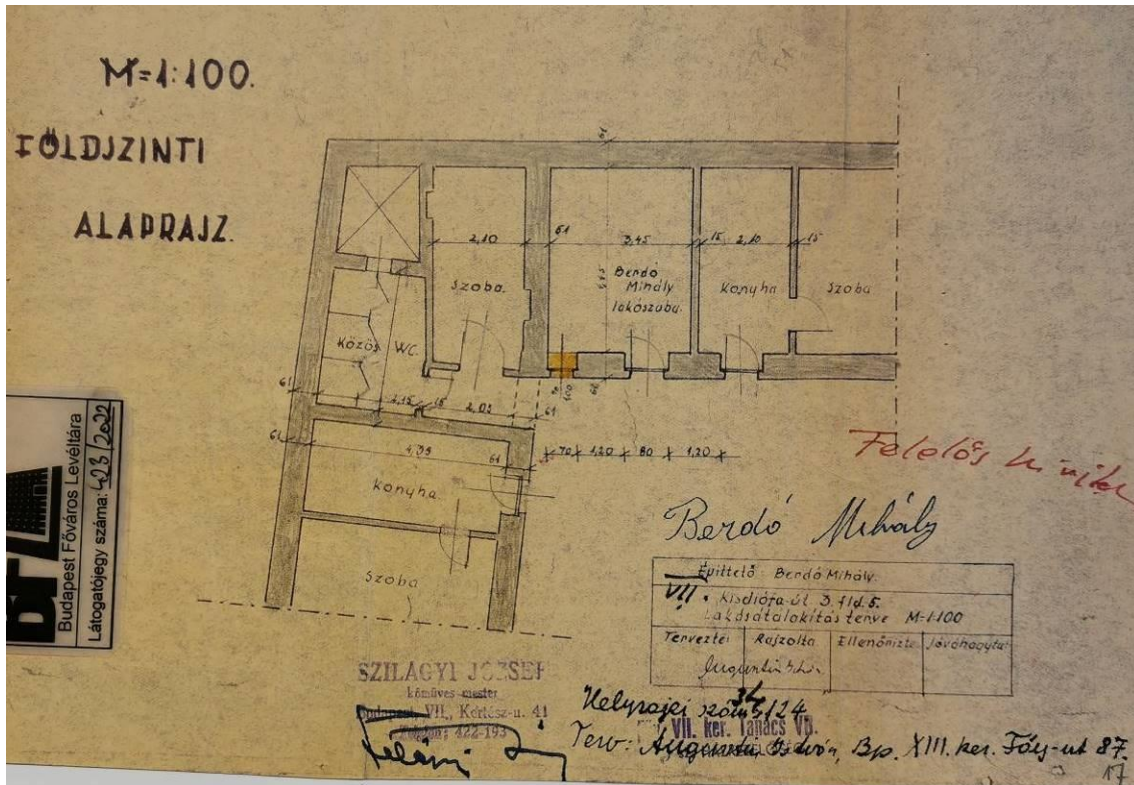 M=1:100.
FÖLDSZINTI
ALAPRAJZ.
61
2,10
61
3,45
15
2,10
15
Szoba.
Berdó
Mihály
lakószoba.
Konyha
Szoba
Közös WC.
100
61
15
2,03
61
61
4,35
61
70 1,20 80 1,20
Konyha
Szoba
Felelős
Berdó Mihály
Építtető: Berdó Mihály.
VII. Kisdiófa-út 3. fld. 5.
Lakásátalakítás terve M=1:100
Tervezte: Rajzolta Ellenőrizte Jóváhagyta:
SZILÁGYI JÓZSEF
kőműves-mester
Budapest, VII., Kertész-u. 41
Telefon: 422-193
Helyrajzi szám: 34/24
VII. ker. Tanács VB.
Terv: István, Bp. XIII. ker. Fáy-ut 87.
17
Budapest Főváros Levéltára
Látogatójegy száma: 423/2022